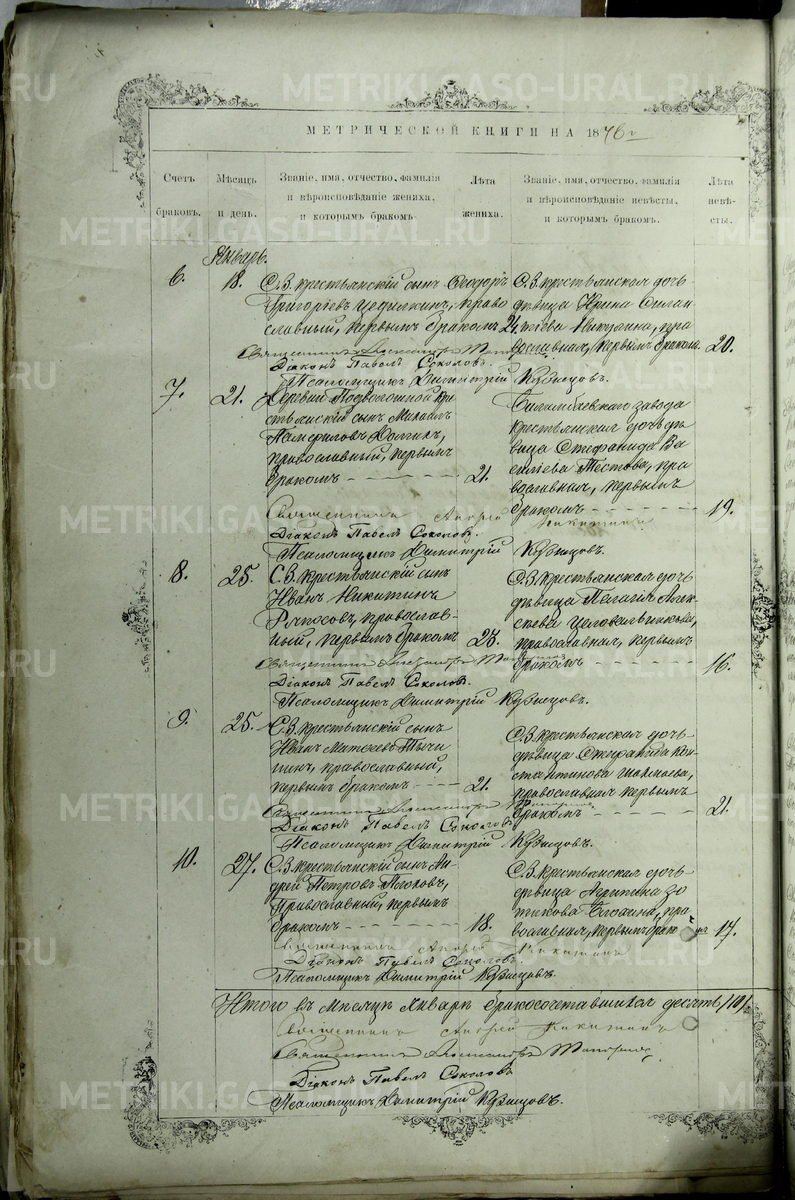 МЕТРИЧЕСКОЙ КНИГИ НА 1876 г
Счетъ браковъ.
Мѣсяцъ и день.
Званіе, имя, отчество, фамилія и вѣроисповѣданіе жениха, и которымъ бракомъ.
Лѣта жениха.
Званіе, имя, отчество, фамилія и вѣроисповѣданіе невѣсты, и которымъ бракомъ.
Лѣта невѣсты.
Январь.
6. 18.
С. З. крестьянскій сынъ Ѳеодоръ
Григорьевъ православный, первымъ бракомъ 21.
С. З. крестьянская дочь
дѣвица Ирина
Никулина, православная, первымъ бракомъ 20.
Священникъ Александръ
Діаконъ Павелъ Соколовъ.
Псаломщикъ Димитрій Кузнецовъ.
7. 21.
Деревни Подволошной кре
стьянскій сынъ Михаилъ
Памфиловъ
православный, первымъ
бракомъ 21.
Билимбаевскаго завода
крестьянская дочь дѣ
вица Стефанида Ва
сильева пра
вославная, первымъ
бракомъ 19.
Священникъ Андрей Никитинъ
Діаконъ Павелъ Соколовъ.
Псаломщикъ Димитрій Кузнецовъ.
8. 25.
С. З. крестьянскій сынъ
Иванъ Никитинъ
православ-
ный, первымъ бракомъ 23.
С. З. крестьянская дочь
дѣвица Пелагія Алек
сѣева Целовальникова,
православная, первымъ
бракомъ 16.
Священникъ Александръ
Діаконъ Павелъ Соколовъ.
Псаломщикъ Димитрій Кузнецовъ.
9. 25.
С. З. крестьянскій сынъ
Иванъ Матѳеевъ
православный,
первымъ бракомъ 21.
С. З. крестьянская дочь
дѣвица Кон
стантинова
православная первымъ
бракомъ 21.
Священникъ Александръ
Діаконъ Павелъ Соколовъ
Псаломщикъ Димитрій Кузнецовъ.
10. 27.
С. З. крестьянскій сынъ Ан
дрей Петровъ
Православный, первымъ
бракомъ 18.
С. З. крестьянская дочь
дѣвица Агрипина Зо
тикова пра
вославная, первымъ бракомъ 17.
Священникъ Андрей Никитинъ
Діаконъ Павелъ Соколовъ.
Псаломщикъ Димитрій Кузнецовъ.
Итого въ мѣсяцѣ Январѣ бракосочетавшихся десять /10/.
Священникъ Андрей Никитинъ
Священникъ Александръ
Діаконъ Павелъ Соколовъ
Псаломщикъ Димитрій Кузнецовъ.
METRIKI.GASO-URAL.RU